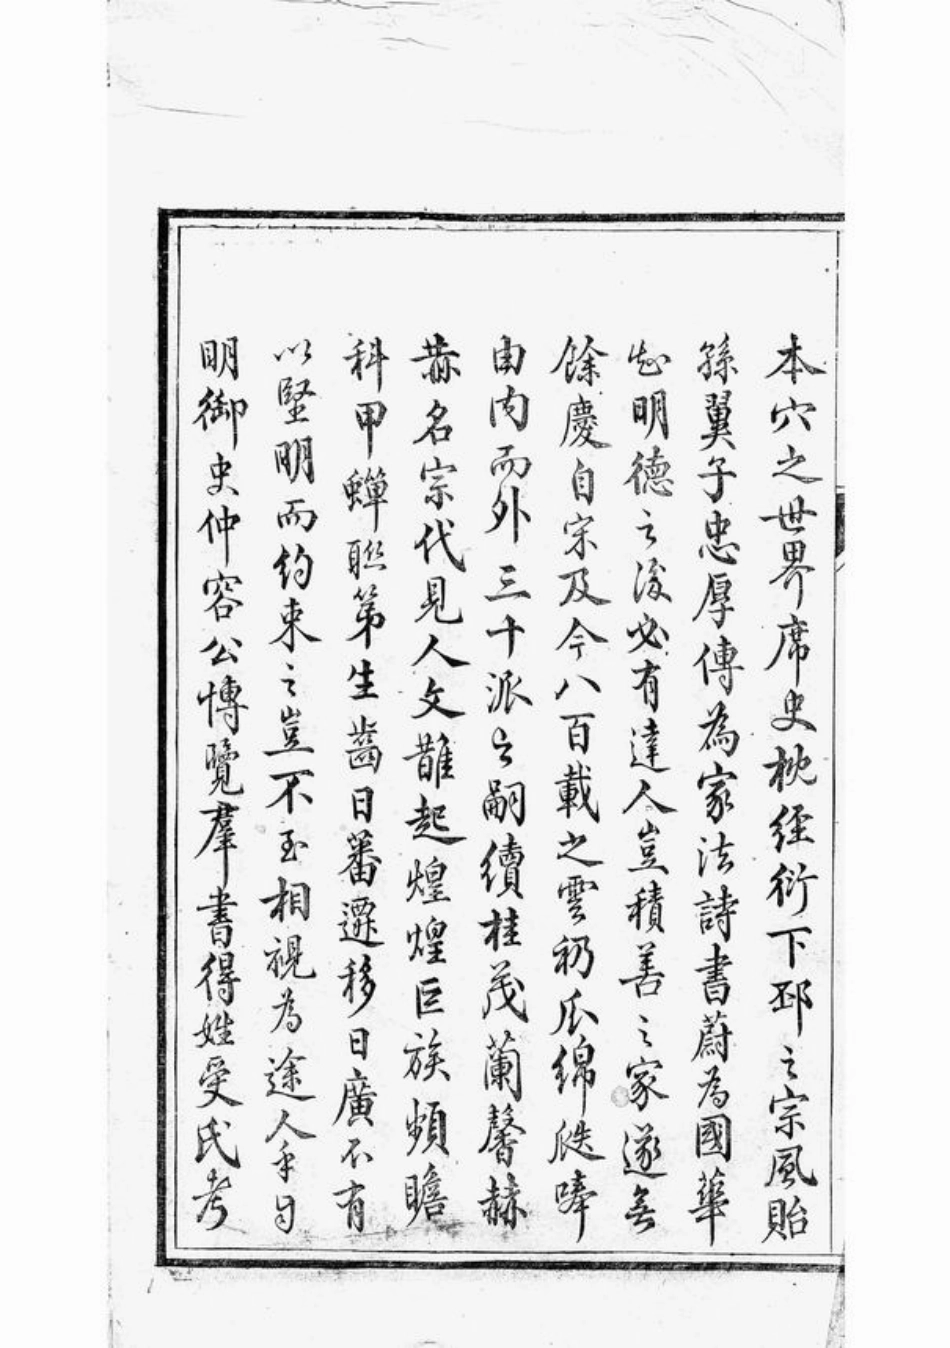 本穴之世界席史枕經衍下邳之宗風貽
孫翼子忠厚傳為家法詩書蔚為國華
知明德之後必有達人豈積善之家遂無
餘慶自宋及今八百載之雲礽瓜綿瓞唪
由内而外三十派之嗣續桂茂蘭馨赫
赫名宗代見人文鵲起煌煌巨族頻瞻
科甲蟬聯第生齒日蕃遷移日廣不有
以堅明而約束之豈不至相視為途人乎自
明御史仲容公博覽羣書得姓受氏考